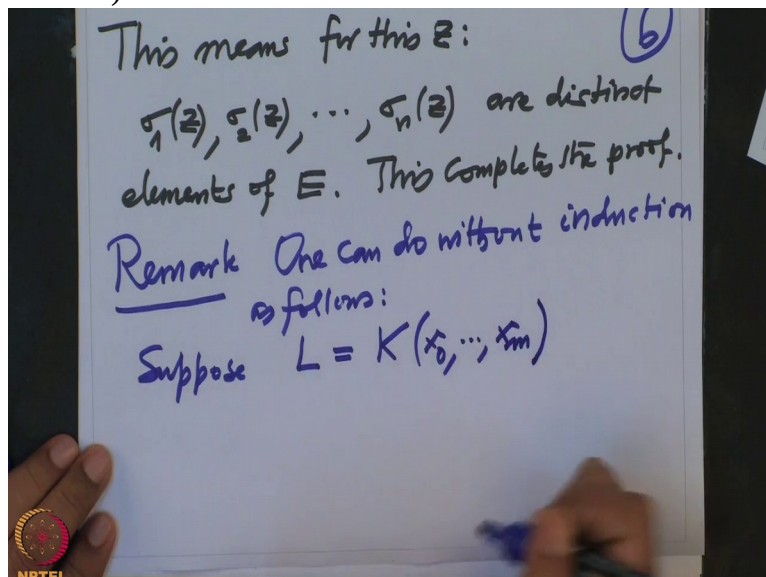 This means for this z:
6
σ₁(z), σ₂(z), ⋯, σₙ(z) are distinct
elements of E. This completes the proof.
Remark One can do without induction
as follows:
Suppose L = K(x₀, ⋯, xₘ)
NPTEL